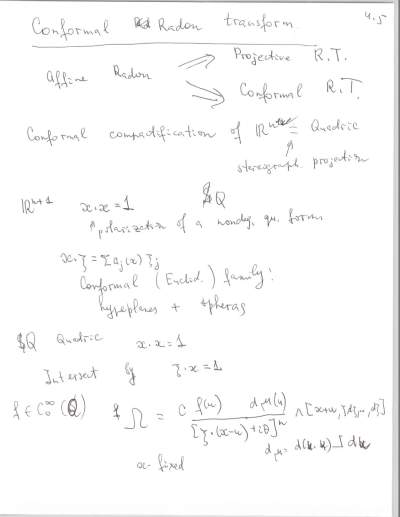 Conformal Radon transform
4.5
Affine Radon ⇒ Projective R.T.
Conformal R.T.
Conformal compactification of ℝⁿ = Quadric
stereograph. projection
ℝⁿ⁺¹ x·x = 1 Q
polarization of a nondeg. qu. form
x·ξ = Σ a_j(x) ξ_j
Conformal (Euclid.) family:
hyperplanes + spheres
Q Quadric x·x = 1
Intersect by ξ·x = 1
f ∈ C₀^∞(Q) Ω = c f(u) d_μ(u) / [ξ·(x-u)+i0]ⁿ ∧
x - fixed